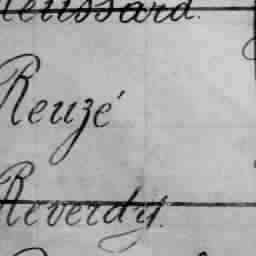 Reussard.
Reuzé
Reverdy.